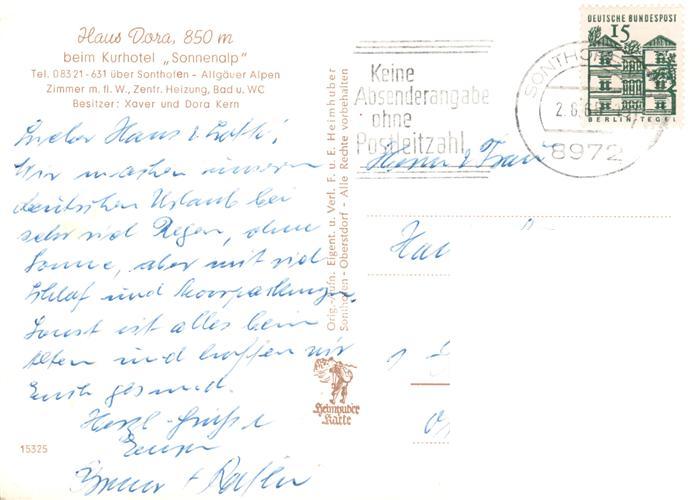 Haus Dora, 850 m
beim Kurhotel „Sonnenalp“
Tel. 08321-631 über Sonthofen – Allgäuer Alpen
Zimmer m. fl. W., Zentr. Heizung, Bad u. WC
Besitzer: Xaver und Dora Kern
Lieber Hans &
Wir machen unseren
deutschen Urlaub bei
sehr viel Regen, ohne
Sonne, aber mit viel
Schlaf und Moorpackungen.
Sonst ist alles beim
Alten und hoffen wir
Euch gesund.
Herzl. Grüße
Eure
15325
Orig.-Aufn. Eigent. u. Verl. F. u. E. Heimhuber
Sonthofen - Oberstdorf - Alle Rechte vorbehalten
Heimhuber
Karte
Keine
Absenderangabe
ohne
Postleitzahl
SONTHOFEN
8972
DEUTSCHE BUNDESPOST
15
BERLIN-TEGEL
Herrn & Frau